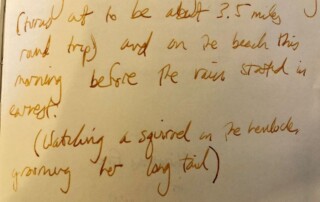 (turned out to be about 3.5 miles
round trip) and on the beach this
morning before the rain started in
earnest.
(Watching a squirrel in the hemlocks
grooming her long tail)